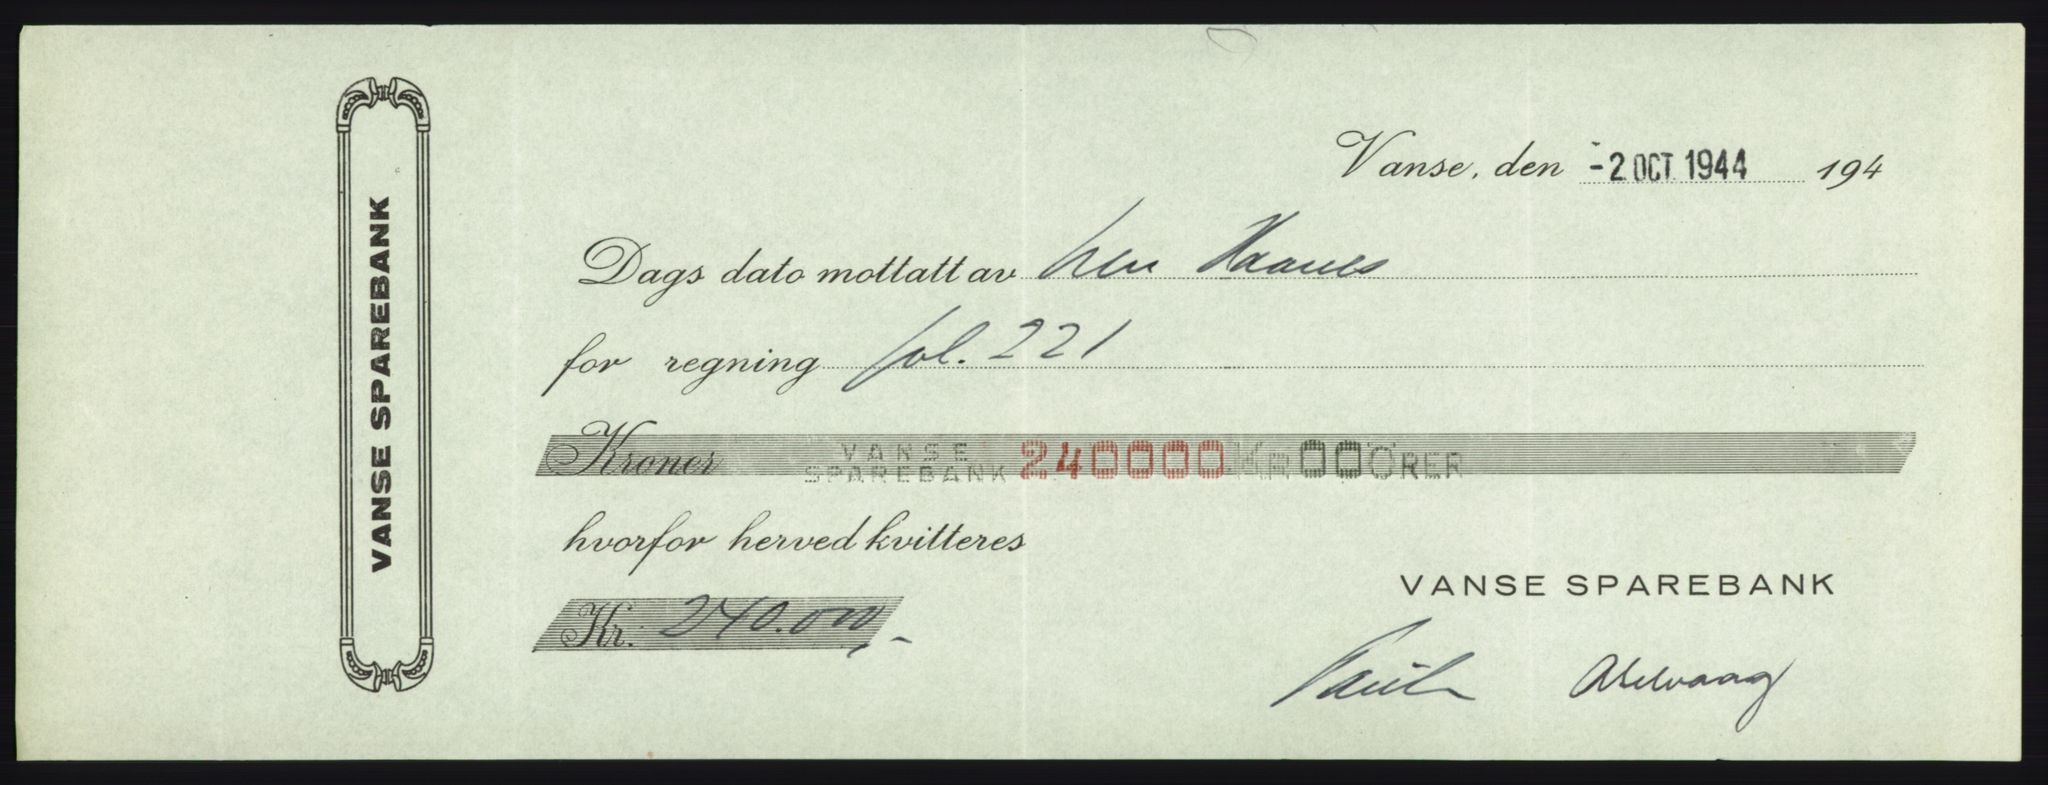 VANSE SPAREBANK
Vanse, den -2 OCT 1944 194
Dags dato mottatt av herr Haanes
for regning fol. 221
Kroner VANSE SPAREBANK 240000 KR 00 ÖRER
hvorfor herved kvitteres
Kr. 240.000,-
VANSE SPAREBANK